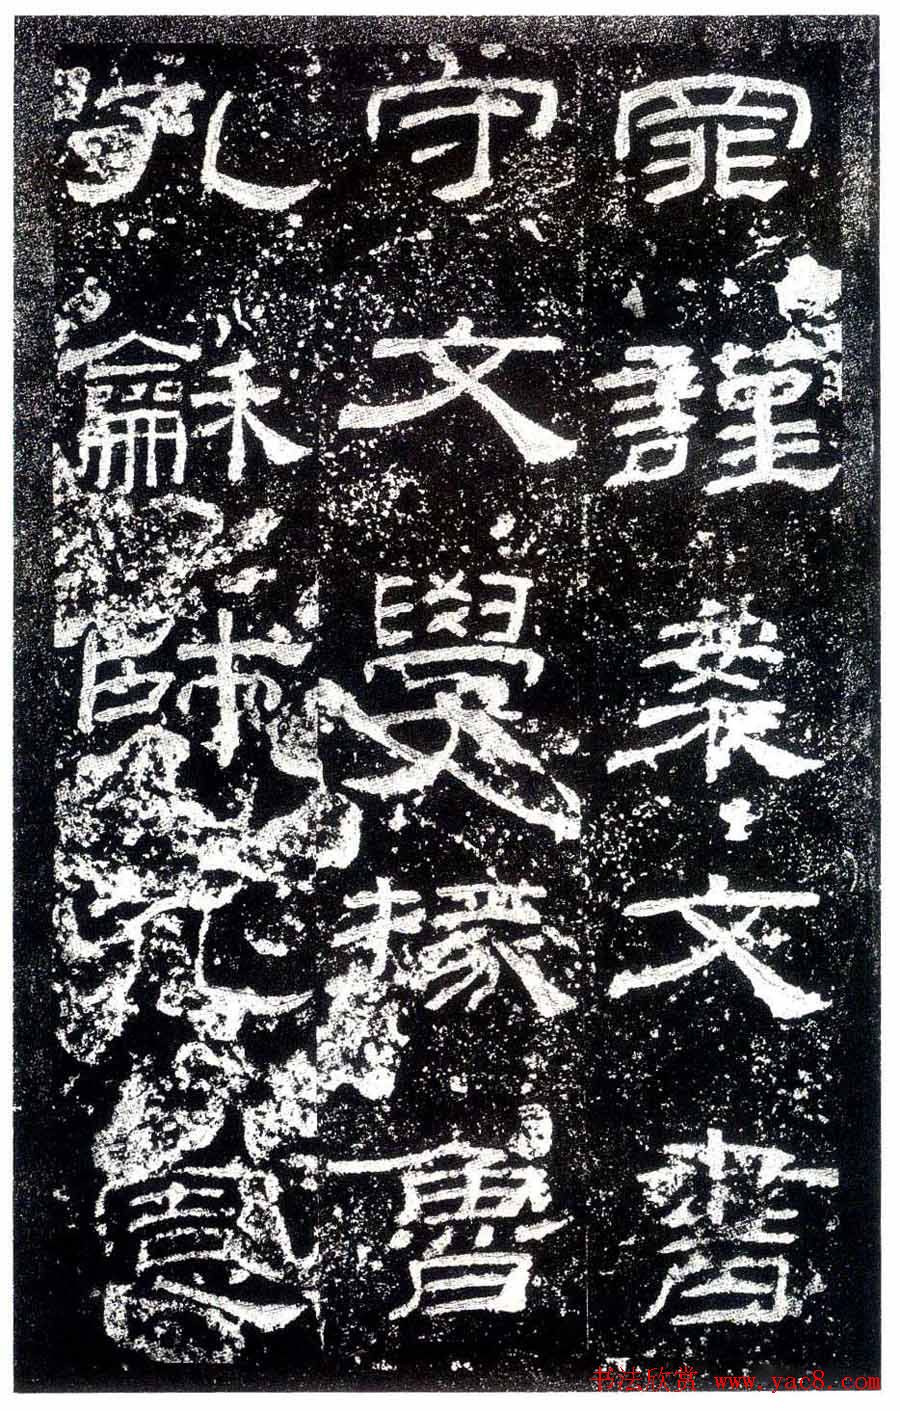 罪謹案〻文書
守文學掾魯
孔龢師孔憲
书法欣赏 www.yac8.com